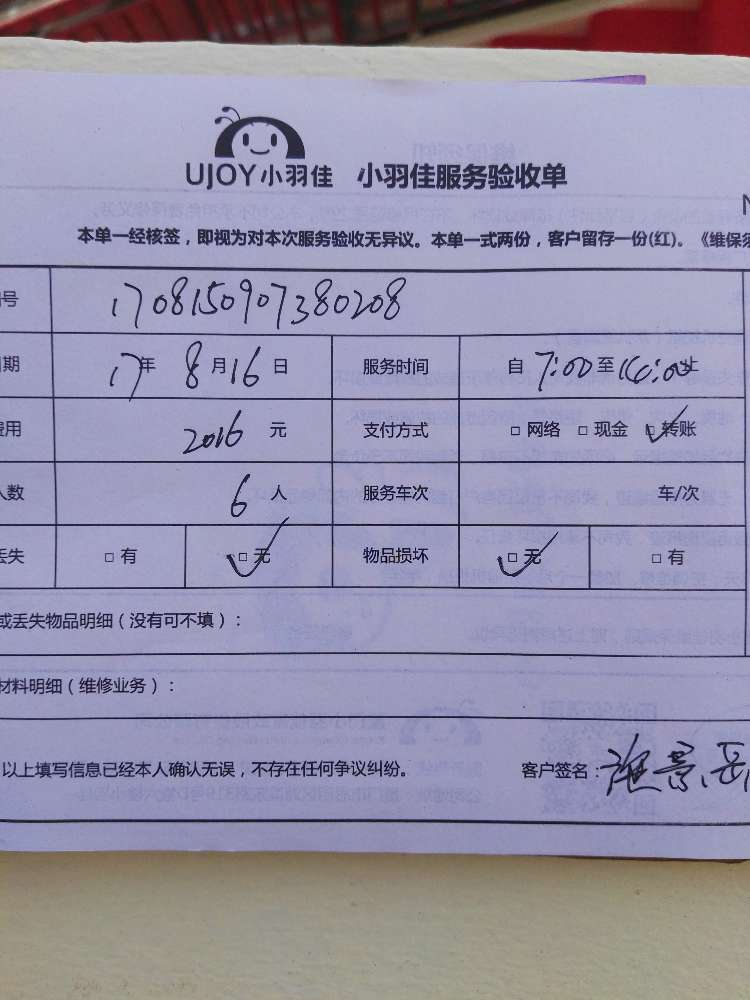 UJOY小羽佳 小羽佳服务验收单
本单一经核签，即视为对本次服务验收无异议。本单一式两份，客户留存一份(红)。《维保须
号 1708150907380208
期 17年 8月16日 服务时间 自 7:00至16:00止
费用 2016 元 支付方式 □ 网络 □ 现金 □ 转账
人数 6 人 服务车次 车/次
丢失 □ 有 □ 无 物品损坏 □ 无 □ 有
或丢失物品明细（没有可不填）：
材料明细（维修业务）：
以上填写信息已经本人确认无误，不存在任何争议纠纷。 客户签名：